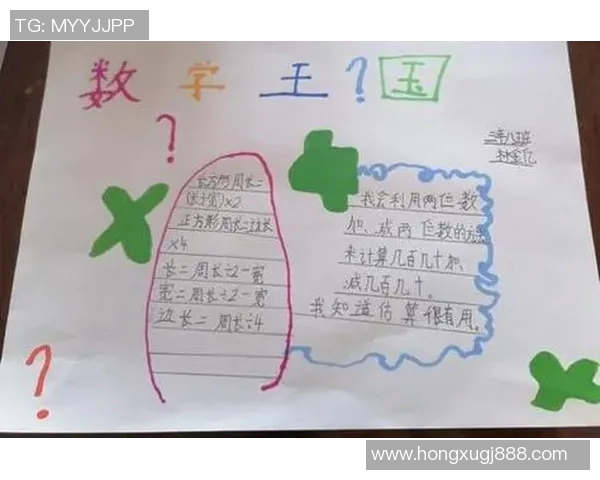 TG: MYYJJPP
数学王?国
?
三年八班
长方形周长=
(长+宽)×2
正方形周长=边长
×4
长=周长÷2-宽
宽=周长÷2-宽
边长=周长÷4
我会利用两位数
加、减两位数的
来计算几百几十加、
减几百几十。
我知道估算很有用。
?
www.hongxugj888.com